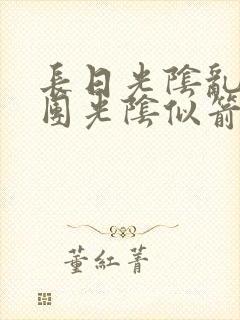 長日光陰亂
園光陰似箭
董紅菁